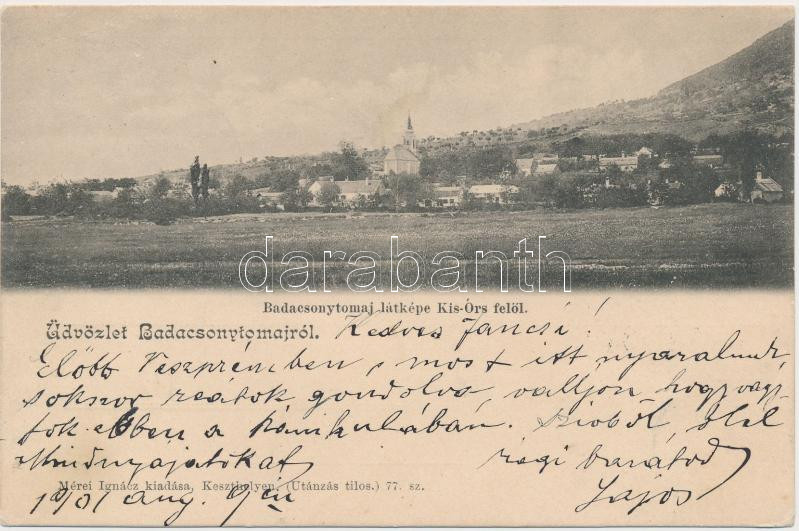 darabanth
Badacsonytomaj látképe Kis-Örs felöl.
Üdvözlet Badacsonytomajról. Kedves Jancsi!
Előbb Veszprémben, most itt nyaralunk,
sokszor reátok gondolva, valljon hogy vagy-
tok ebben a kánikulában. Szívből ölel
Mindnyájatokat régi barátod
Mérei Ignácz kiadása, Keszthelyen. (Utánzás tilos.) 77. sz.
1901 aug. 9én Lajos